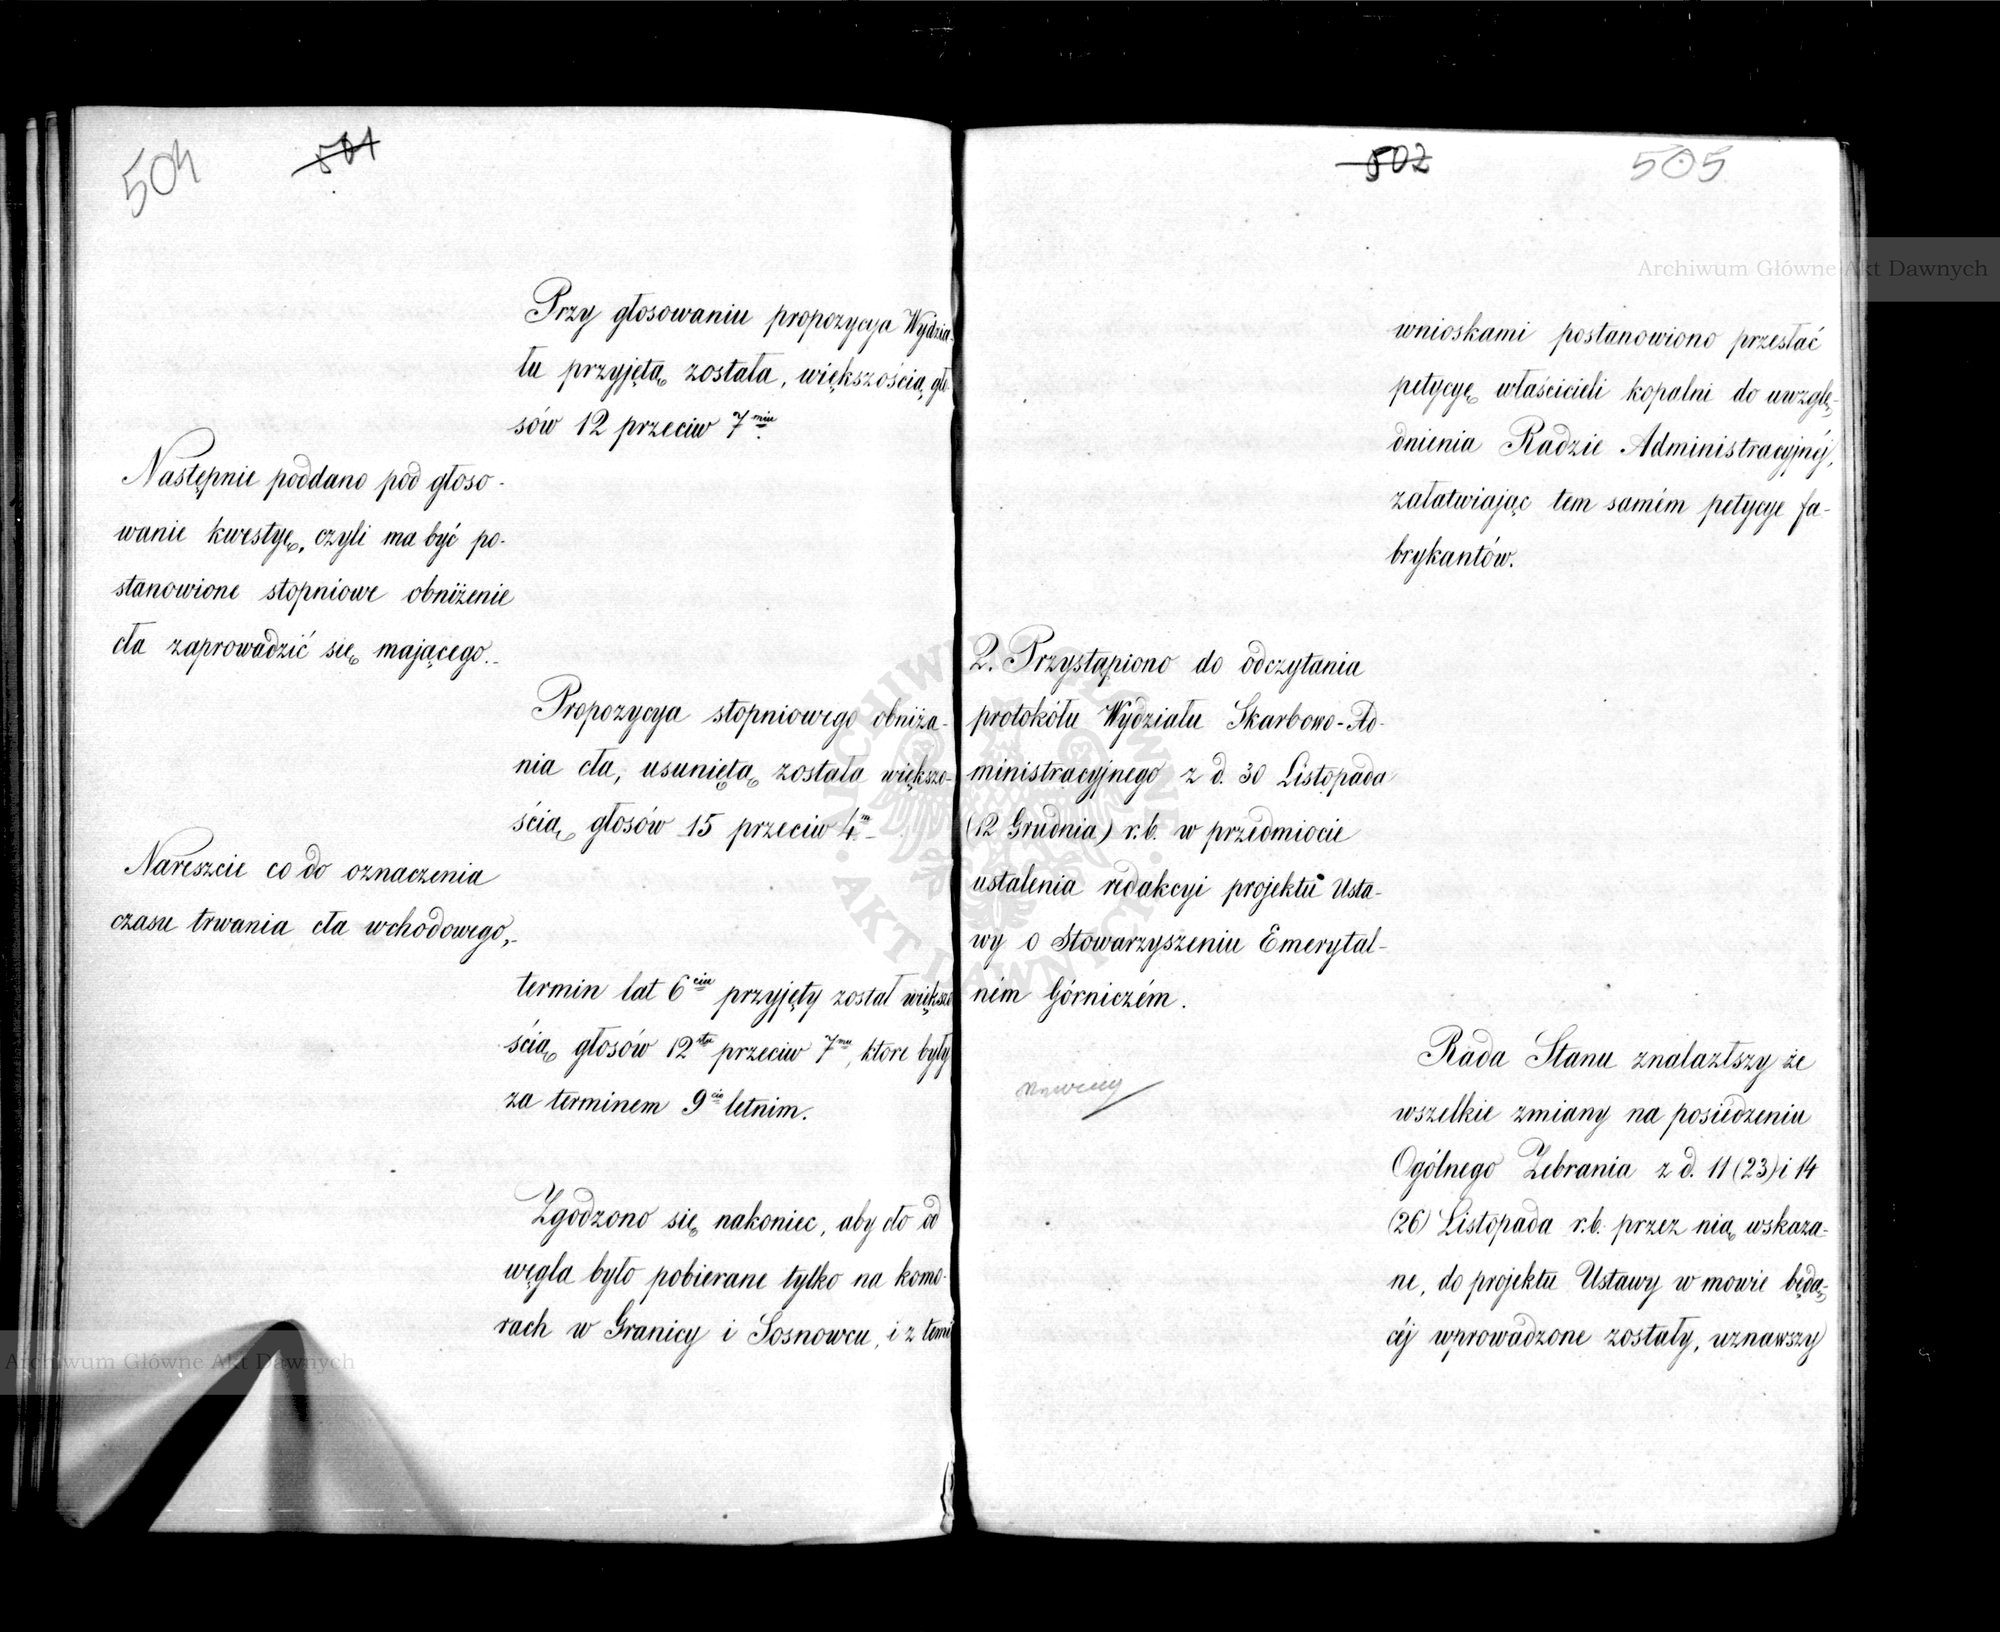 504
501
Przy głosowaniu propozycya Wydzia-
łu przyjętą została, większością gło-
sów 12 przeciw 7miu
Następnie poddano pod głoso-
wanie kwestyę, czyli ma być po-
stanowione stopniowe obniżenie
cła zaprowadzić się mającego.
Propozycya stopniowego obniża-
nia cła, usuniętą została większo-
ścią głosów 15 przeciw 4m
Nareszcie co do oznaczenia
czasu trwania cła wchodowego,
termin lat 6ciu przyjęty został większo
ścią głosów 12stu przeciw 7miu, które były
za terminem 9cio letnim.
Zgodzono się nakoniec, aby cło od
węgla było pobierane tylko na komo-
rach w Granicy i Sosnowcu, i z temi
502
505
wnioskami postanowiono przesłać
petycyę właścicieli kopalni do uwzglę-
dnienia Radzie Administracyjnéj,
załatwiając tem samém petycye fa-
brykantów.
2. Przystąpiono do odczytania
protokółu Wydziału Skarbowo-Ad-
ministracyjnego z d. 30 Listopada
(12 Grudnia) r.b. w przedmiocie
ustalenia redakcyi projektu Usta-
wy o Stowarzyszeniu Emerytal-
ném Górniczém.
Rada Stanu znalazłszy że
wszelkie zmiany na posiedzeniu
Ogólnego Zebrania z d. 11 (23) i 14
(26) Listopada r.b. przez nią wskaza-
ne, do projektu Ustawy w mowie będą-
céj wprowadzone zostały, uznawszy
Archiwum Główne Akt Dawnych
Archiwum Główne Akt Dawnych
ARCHIWUM GŁÓWNE AKT DAWNYCH